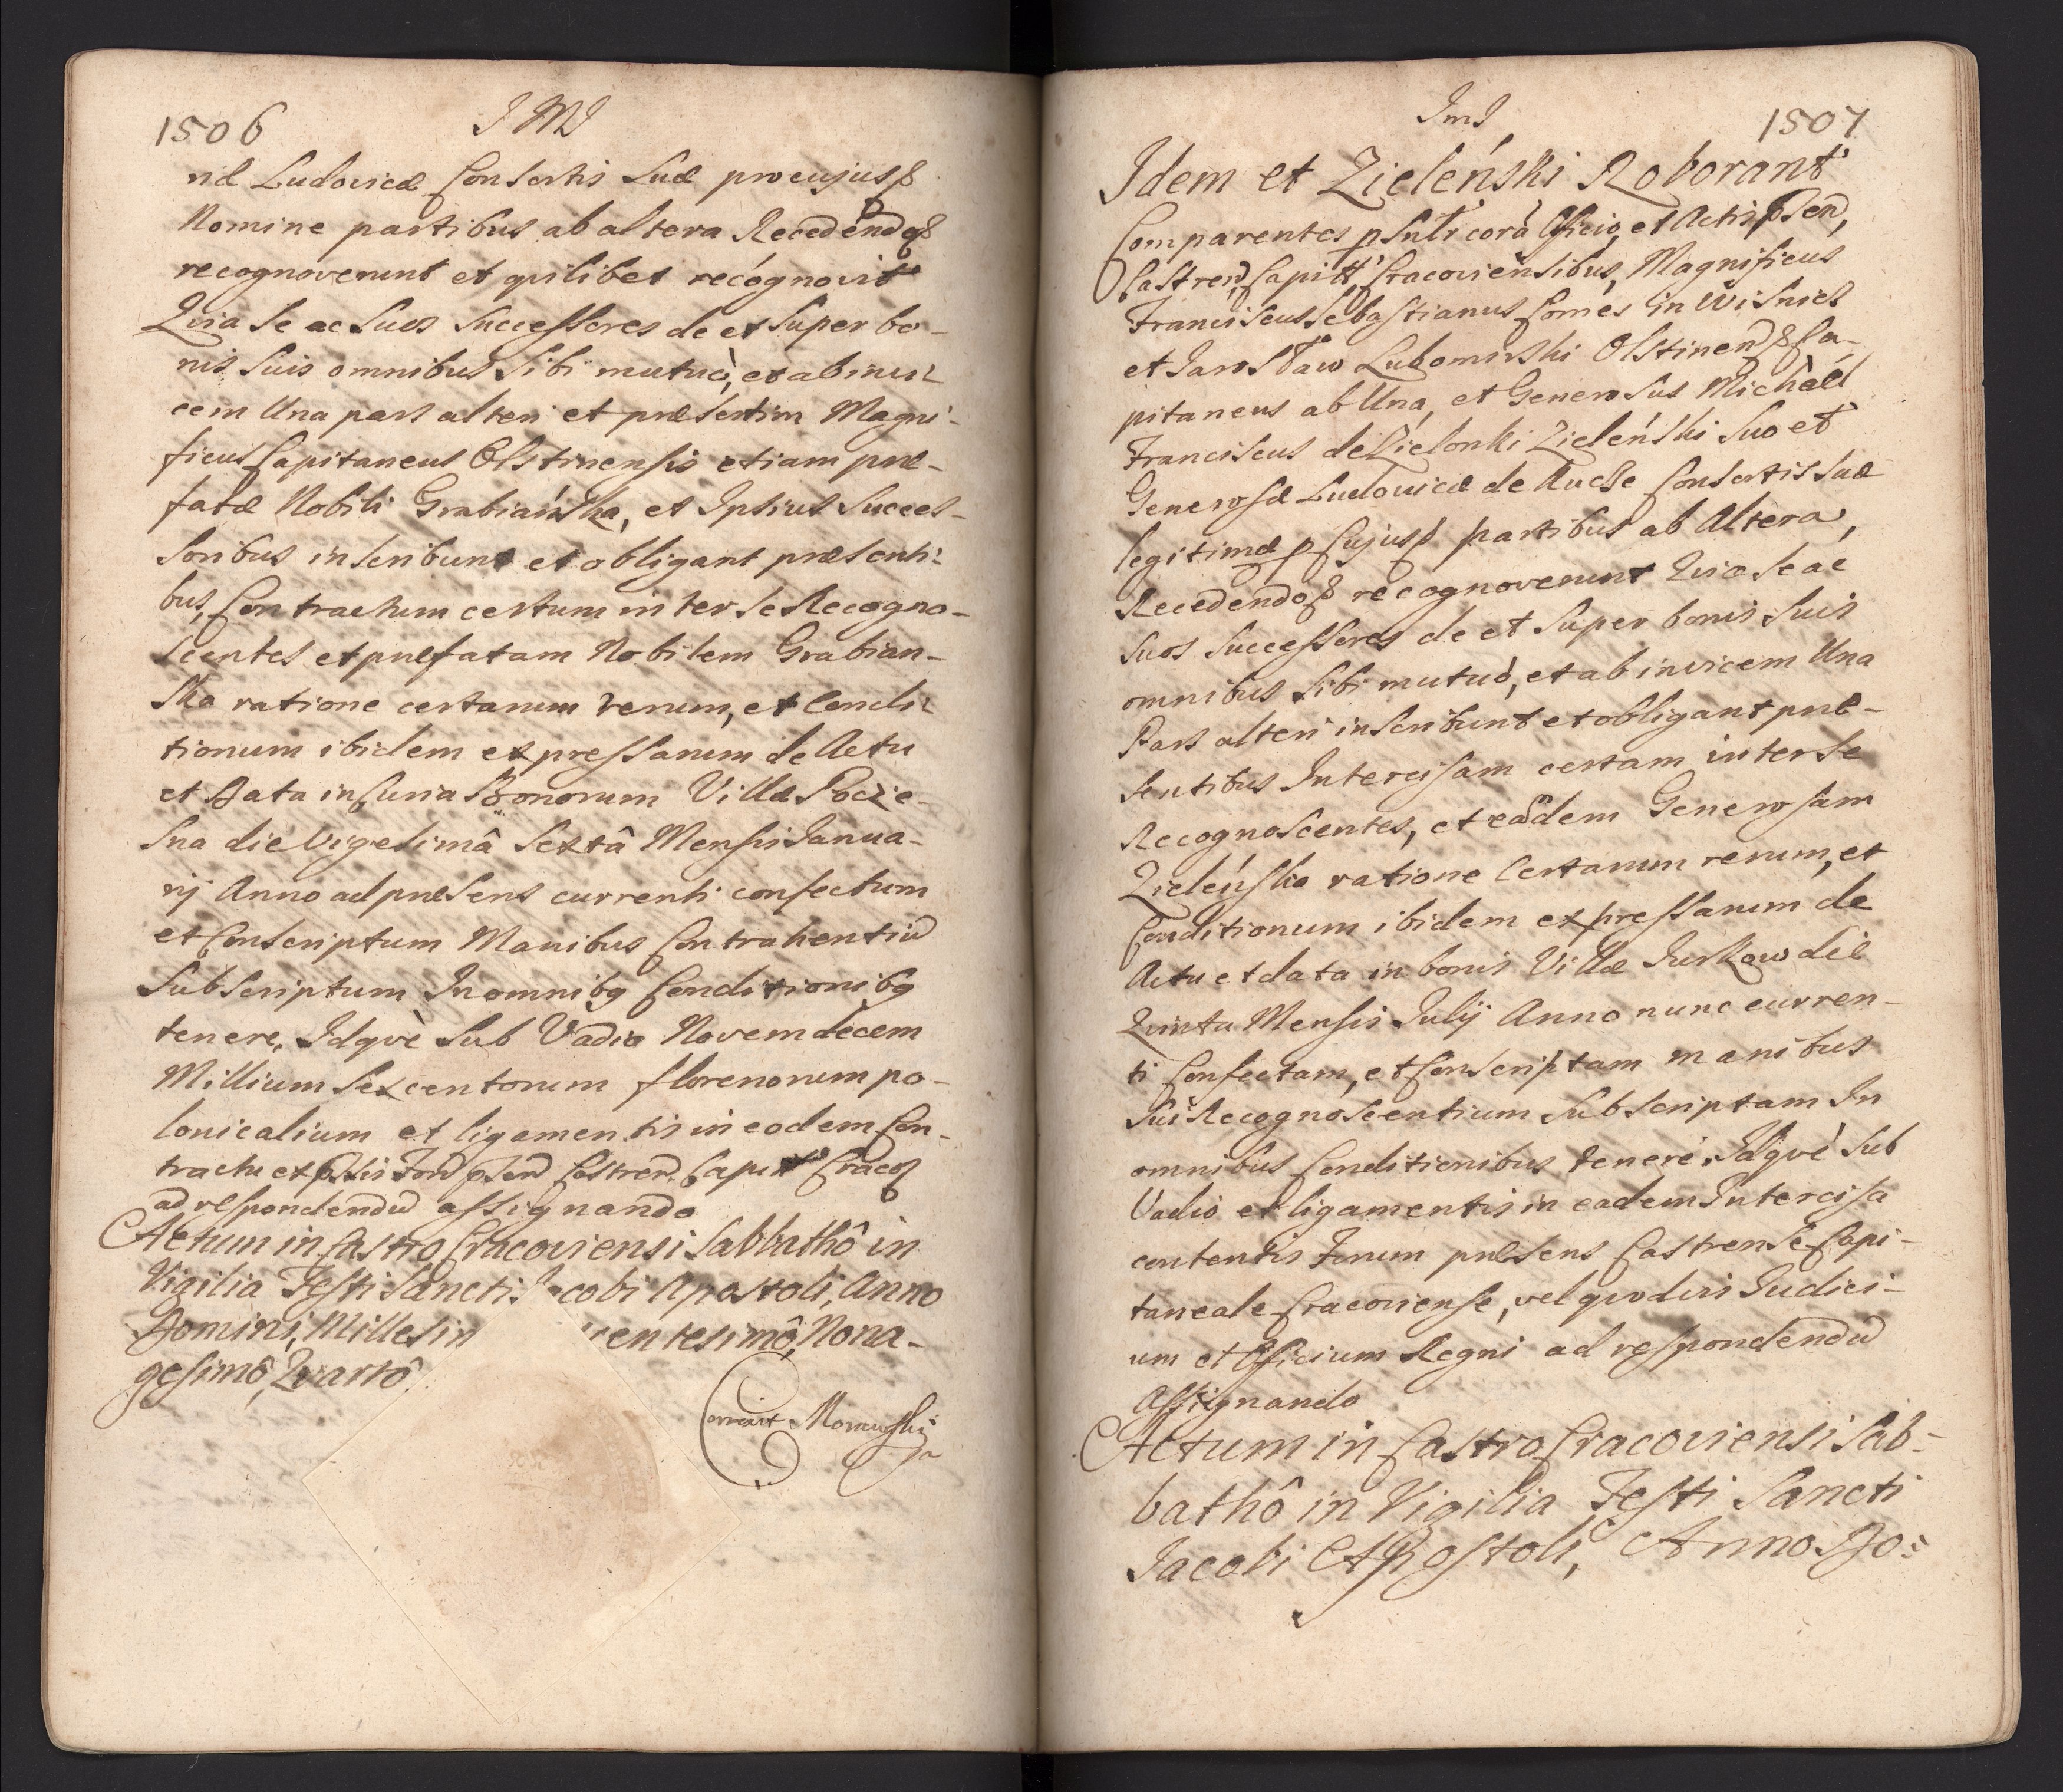 1506
JMJ
næ Ludovicæ Consortis Suæ pro cujus
Nomine partibus ab altera Recedendo
recognoverunt et quilibet recognovit
Quia Se ac Suos Successores de et Super bo-
nis Suis omnibus Sibi mutuò, et ab invi-
cem Una pars alteri et præsertim Magni-
ficus Capitaneus Olstinensis etiam præ-
fatæ Nobili Grabiańska, et Ipsius Succes-
soribus inscribunt et obligant præsenti-
bus, Contractum certum inter Se Recogno-
scentes et præfatam Nobilem Grabian-
ska ratione certarum rerum, et Condi-
tionum ibidem expressarum de Actu
et Data in Curia Bonorum Villæ Pocze-
sna die Vigesimâ Sextâ Mensis Janua-
rij Anno ad præsens currenti confectum
et Conscriptum Manibus Contrahentiũ
Subscriptum In omnibq Conditionibq
tenere, Idquè Sub Vadio Novemdecem
Millium Sexcentorum florenorum po-
lonicalium et ligamentis in eodem Con-
tractu Castren Capit Cracov
ad respondendũ assignando
Actum in Castro Cracoviensi Sabbathô in
Vigilia Festi Sancti Jacobi Apostoli, Anno
Domini, Millesim entesimô, Nona-
gesimô, Quartô.
Correxit Morawski
JmJ
1507
Idem et Zieleński Roborant
Comparentes psnlr corã Officio, et Actis psen,
Castren, Capitt, Cracoviensibus, Magnificus
Franciscus Sebastianus Comes in Wisnicz
et Jarosław Lubomirski Olstinen Ca-
pitaneus ab Una, et Generosus Michael
Franciscus de Zielonki Zieleński Suo et
Generosæ Ludovicæ de Consortis Suæ
legitimæ p Cujus partibus ab Altera,
Recedendo recognoverunt Quia Se ac
Suos Successores de et Super bonis Suis
omnibus Sibi mutuò, et ab invicem Una
Pars alteri inscribunt et obligant præ-
sentibus Intercisam certam inter Se
Recognoscentes, et eãdem Generosam
Zieleńska ratione Certarum rerum, et
Conditionum ibidem expressarum de
Actu et data in bonis Villæ Jurkow die
Quinta Mensis Julij Anno nunc curren-
ti Confectam, et Conscriptam manibus
Sui Recognoscentium Subscriptam In
omnibus Conditionibus tenere, Idquè Sub
Vadio et ligamentis in eadem Intercisa
contentis Forum præsens Castrense Capi-
taneale Cracoviense, vel quodvis Judici-
um et Officium Regni ad respondendũ
Assignando
Actum in Castro Cracoviensi Sab-
bathô in Vigilia Festi Sancti
Jacobi Apostoli, Anno Do-